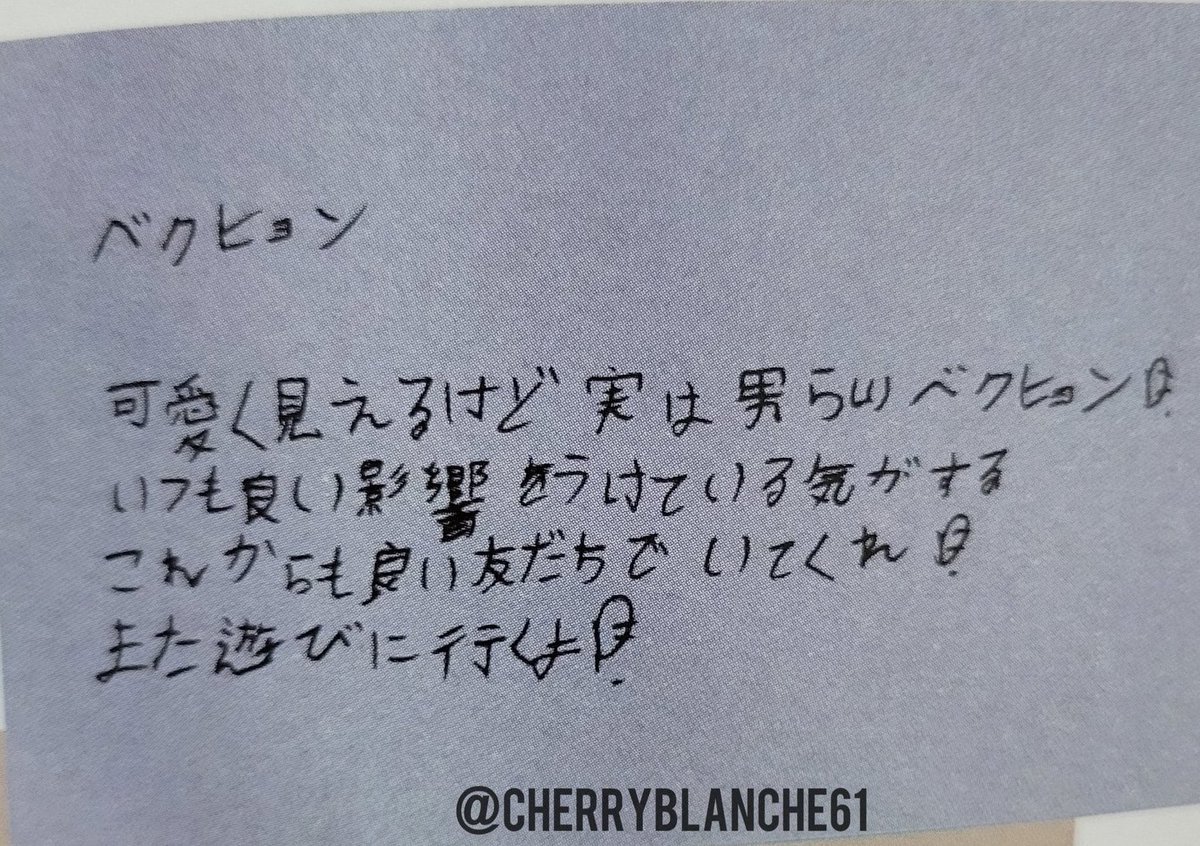 ベクヒョン
可愛く見えるけど実は男らしいベクヒョン!
いつも良い影響をうけている気がする
これからも良い友だちでいてくれ!
また遊びに行くよ!
@CHERRYBLANCHE61